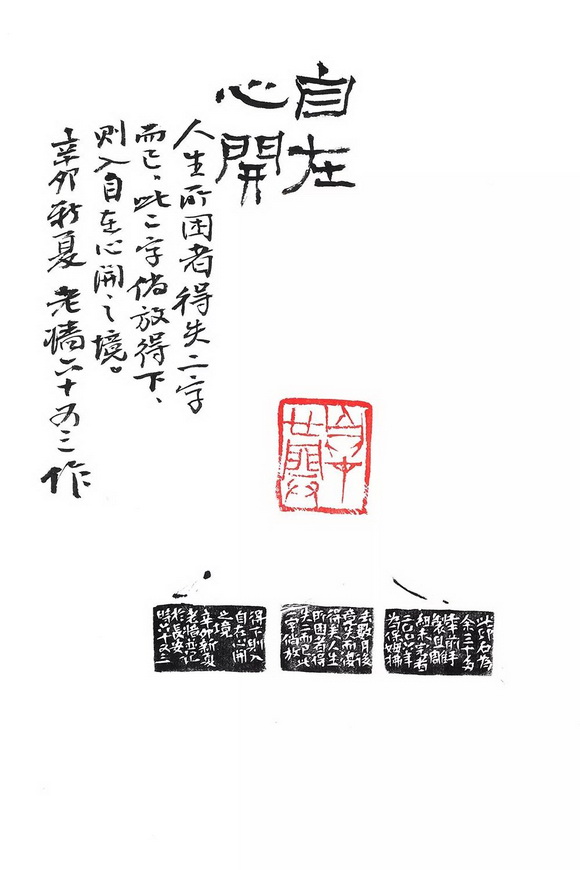 自在
心開
人生所困者得失二字
而已、此二字倘放得下、
則入自在心開之境。
辛卯新夏 老墻六十又三作
此印石為
余三十多
季前手
製且雕
未完者
為保姆掃
去數月後
竟失而復
得矣人生
所困者得
失二而已此
二字倘放
得下則入
自在心開
之境
辛卯新夏
老墻並記
於長安
時六十又三